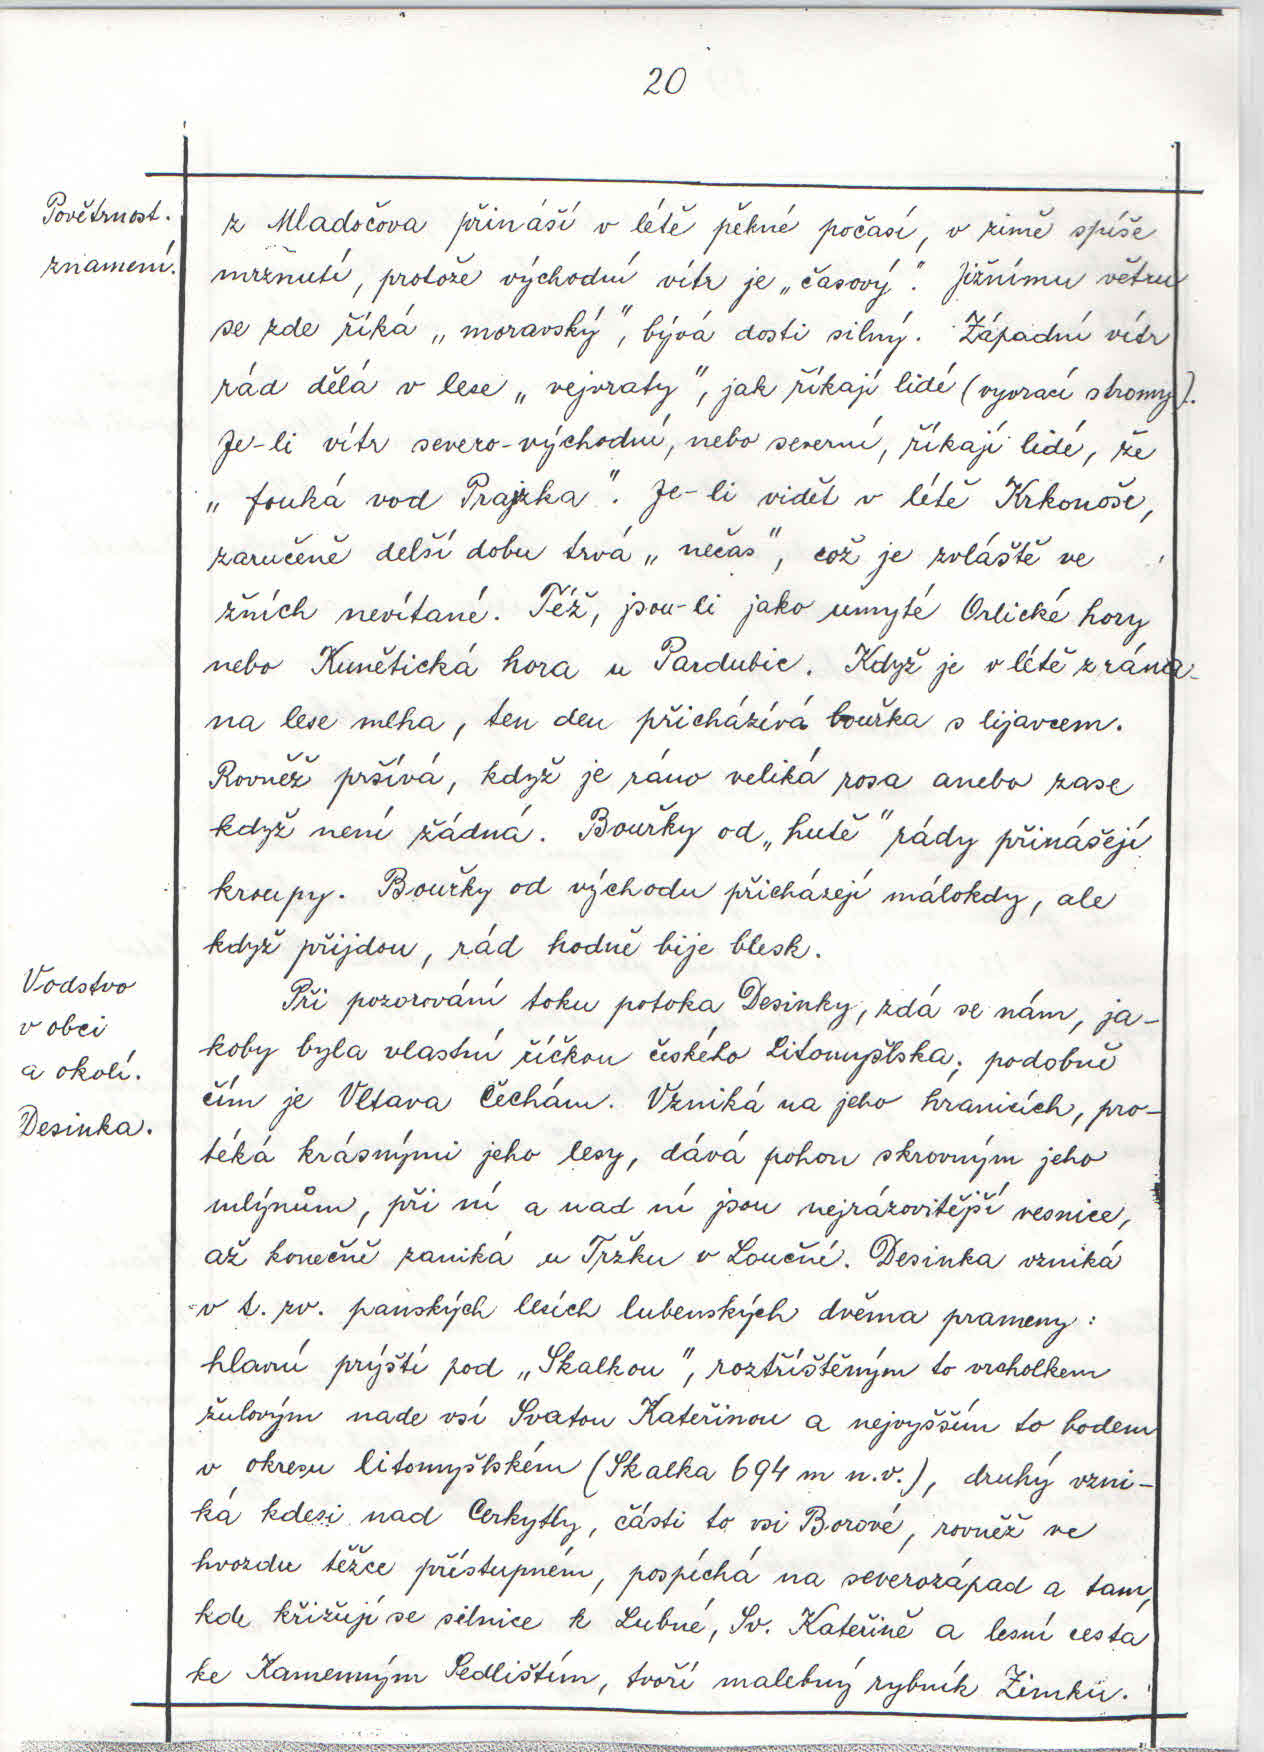 20
Povětrnost.
znamení.
z Mladočova přináší v létě pěkné počasí, v zimě spíše
mrznutí, protože východní vítr je „časový". Jižnímu větru
se zde říká „moravský", bývá dosti silný. Západní vítr
rád dělá v lese „vejvraty", jak říkají lidé (vyvrací stromy).
Je-li vítr severo-východní, nebo severní, říkají lidé, že
„fouká vod Prajzka". Je-li vidět v létě Krkonoše,
zaručeně delší dobu trvá „nečas", což je zvláště ve
žních nevítané. Též, jsou-li jako umyté Orlické hory
nebo Kunětická hora u Pardubic. Když je v létě z rána
na lese mlha, ten den přicházívá bouřka s lijavcem.
Rovněž pršívá, když je ráno veliká rosa anebo zase
když není žádná. Bouřky od „hutě" rády přinášejí
kroupy. Bouřky od východu přicházejí málokdy, ale
když přijdou, rád hodně bije blesk.
Vodstvo
v obci
a okolí.
Desinka.
Při pozorování toku potoka Desinky, zdá se nám, ja-
koby byla vlastní říčkou českého Litomyšlska; podobně
čím je Vltava Čechám. Vzniká na jeho hranicích, pro-
téká krásnými jeho lesy, dává pohon skrovným jeho
mlýnům, při ní a nad ní jsou nejrázovitější vesnice,
až konečně zaniká u Tržku v Loučné. Desinka vzniká
v t. zv. panských lesích lubenských dvěma prameny:
hlavní prýští pod „Skalkou", roztříštěným to vrcholkem
žulovým nade vsí Svatou Kateřinou a nejvyšším to bodem
v okresu litomyšlském (Skalka 694 m n.v.), druhý vzni-
ká kdesi nad Cerkytly, části to vsi Borové, rovněž ve
hvozdu těžce přístupném, pospíchá na severozápad a tam,
kde křižují se silnice k Lubné, Sv. Kateřině a lesní cesta
ke Kamenným Sedlištím, tvoří malebný rybník Zimku.